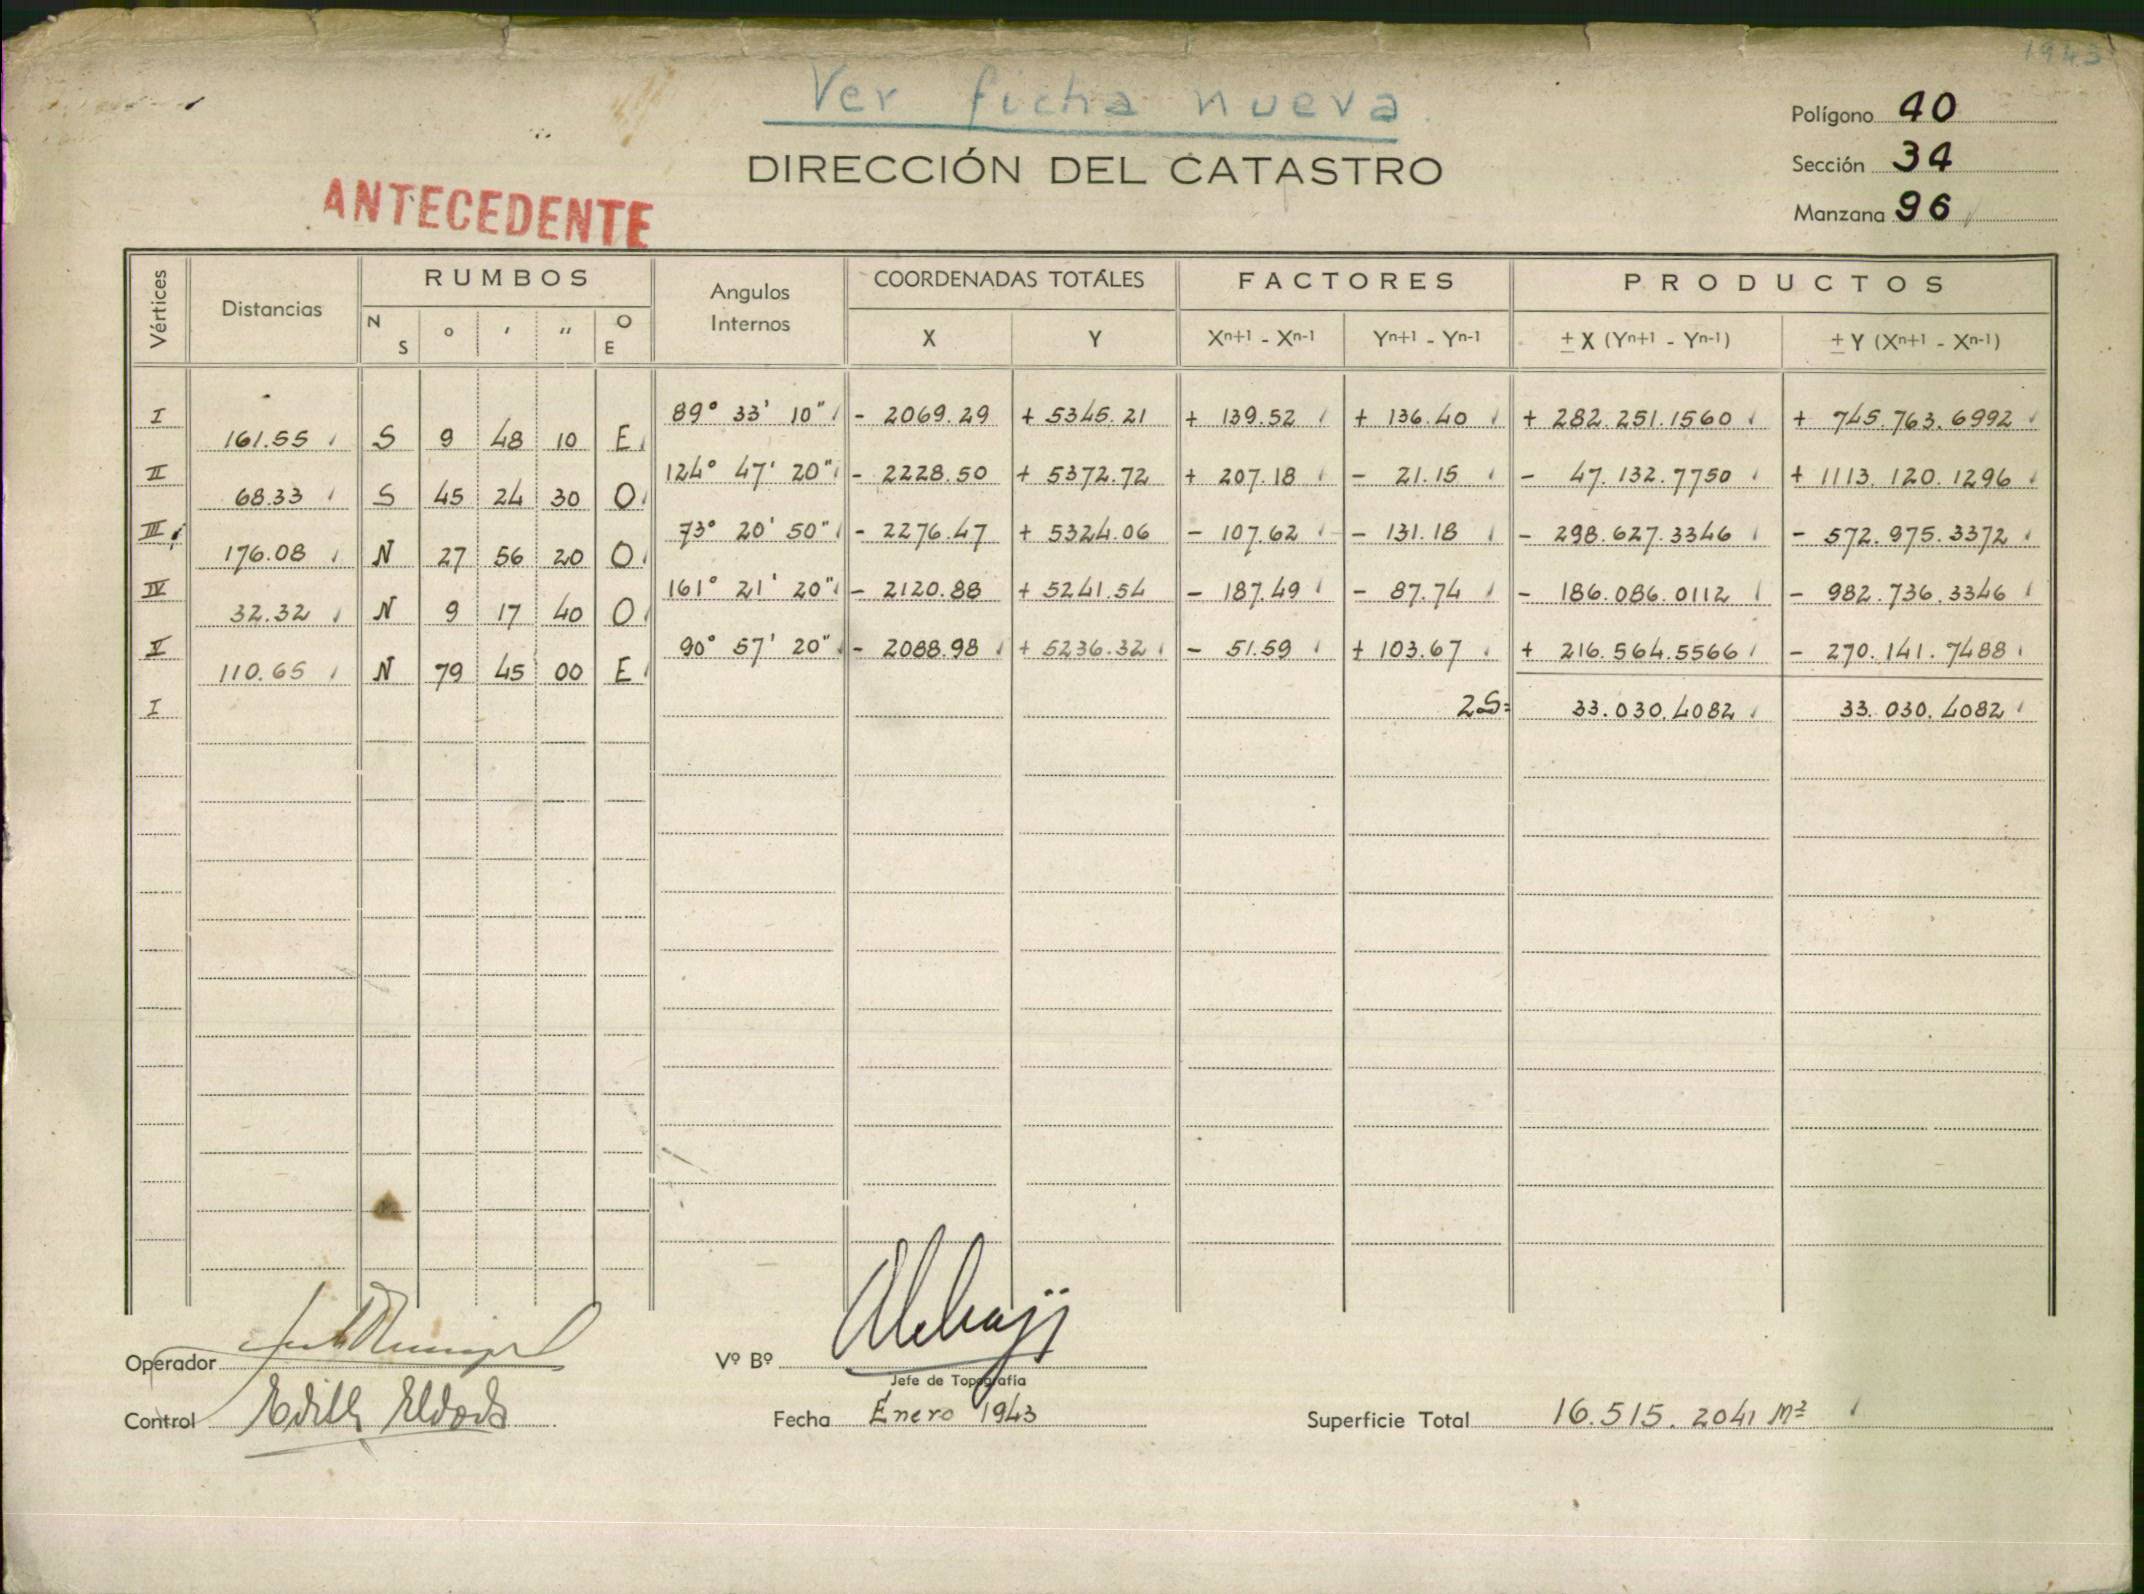 1943
Ver ficha nueva
DIRECCIÓN DEL CATASTRO
ANTECEDENTE
Polígono 40
Sección 34
Manzana 96
Vértices Distancias RUMBOS Angulos Internos COORDENADAS TOTALES FACTORES PRODUCTOS
N S ° ' " O E X Y Xn+1 - Xn-1 Yn+1 - Yn-1 ± X (Yn+1 - Yn-1) ± Y (Xn+1 - Xn-1)
I 89° 33' 10" - 2069.29 + 5345.21 + 139.52 + 136.40 + 282.251.1560 + 745.763.6992
161.55 S 9 48 10 E
II 124° 47' 20" - 2228.50 + 5372.72 + 207.18 - 21.15 - 47.132.7750 + 1113.120.1296
68.33 S 45 24 30 O
III 73° 20' 50" - 2276.47 + 5324.06 - 107.62 - 131.18 - 298.627.3346 - 572.975.3372
176.08 N 27 56 20 O
IV 161° 21' 20" - 2120.88 + 5241.54 - 187.49 - 87.74 - 186.086.0112 - 982.736.3346
32.32 N 9 17 40 O
V 90° 57' 20" - 2088.98 + 5236.32 - 51.59 + 103.67 + 216.564.5566 - 270.141.7488
110.65 N 79 45 00 E
I 2S= 33.030.4082 33.030.4082
Operador
Vº Bº
Jefe de Topografía
Control Edith
Fecha Enero 1943
Superficie Total 16.515.2041 M²